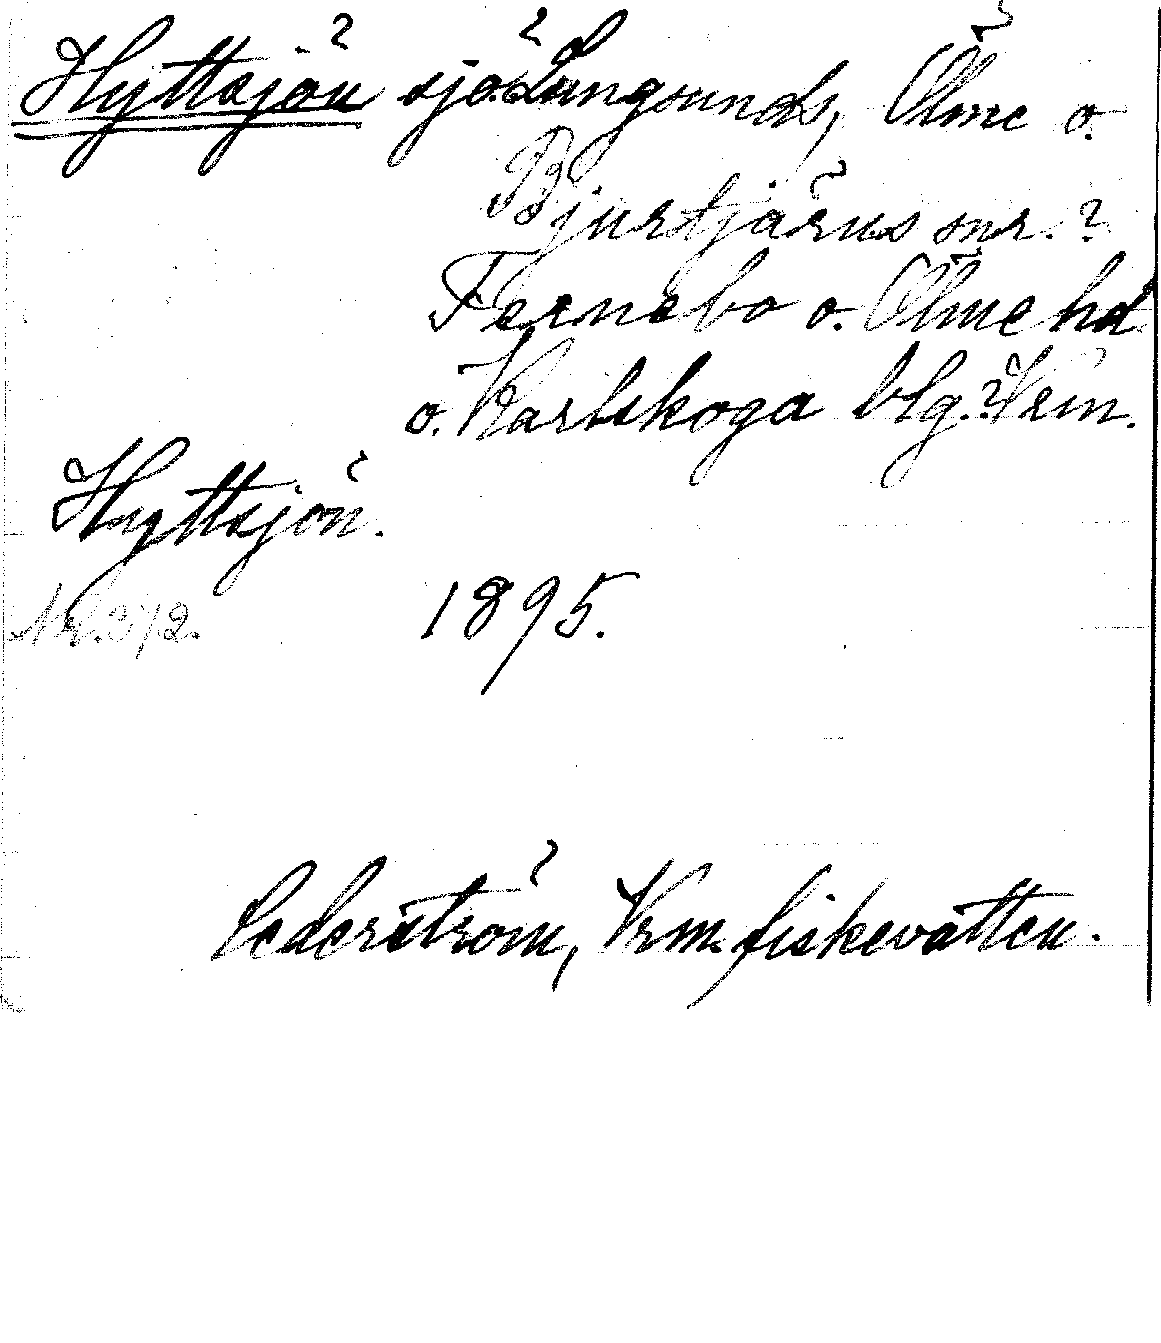 Hyttsjön sjö. Lungsunds, Ölme o.
Bjurtjärns snr.?
Fernebo o. Ölme hd
o. Karlskoga blg.? Vrm.
Hyttsjön.
Nr. 312. 1895.
Cederström, Vrm. fiskevatten.